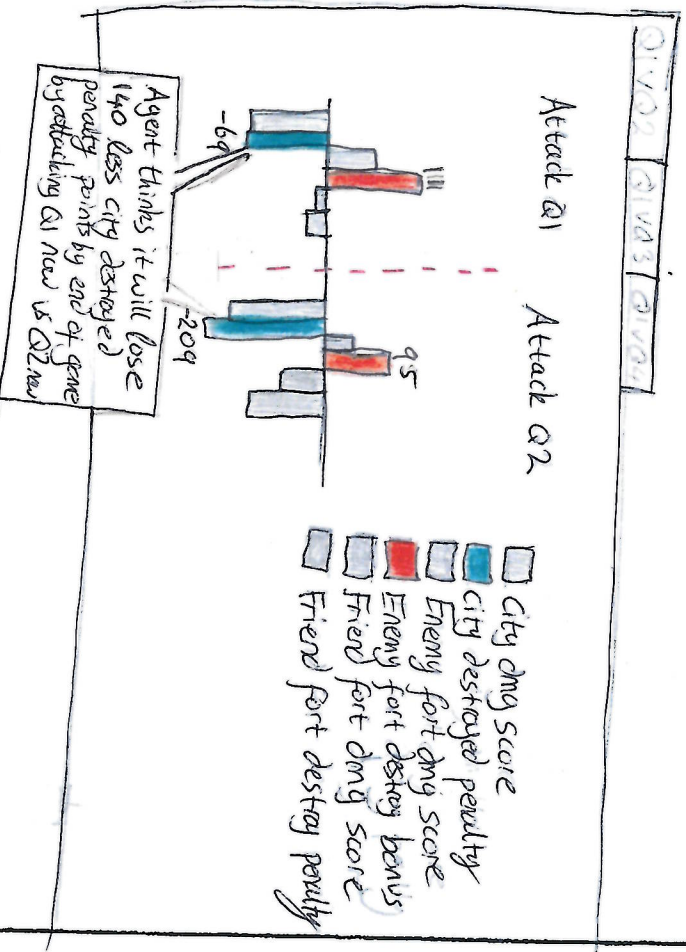 Q1vQ2 Q1vQ3 Q1vQ4
Attack Q1
Attack Q2
111
95
-69
-209
City dmg score
City destroyed penalty
Enemy fort dmg score
Enemy fort destroy bonus
Friend fort dmg score
Friend fort destroy penalty
Agent thinks it will lose
140 less city destroyed
penalty points by end of game
by attacking Q1 now vs Q2 now